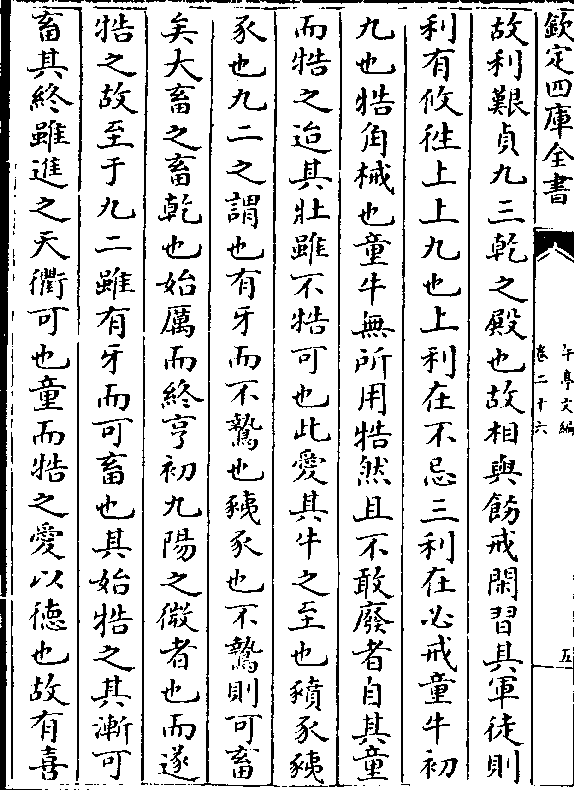 欽定四庫全書
午亭文編
卷二十六
五
故利艱貞九三乾之殿也故相與飭戒閑習其軍徒則
利有攸徃上上九也上利在不忌三利在必戒童牛初
九也牿角械也童牛無所用牿然且不敢廢者自其童
而牿之迨其壯雖不牿可也此愛其牛之至也豶豕豮
豕也九二之謂也有牙而不鷙也豮豕也不鷙則可畜
矣大畜之畜乾也始厲而終亨初九陽之微者也而遂
牿之故至于九二雖有牙而可畜也其始牿之其漸可
畜其終雖進之天衢可也童而牿之愛以德也故有喜